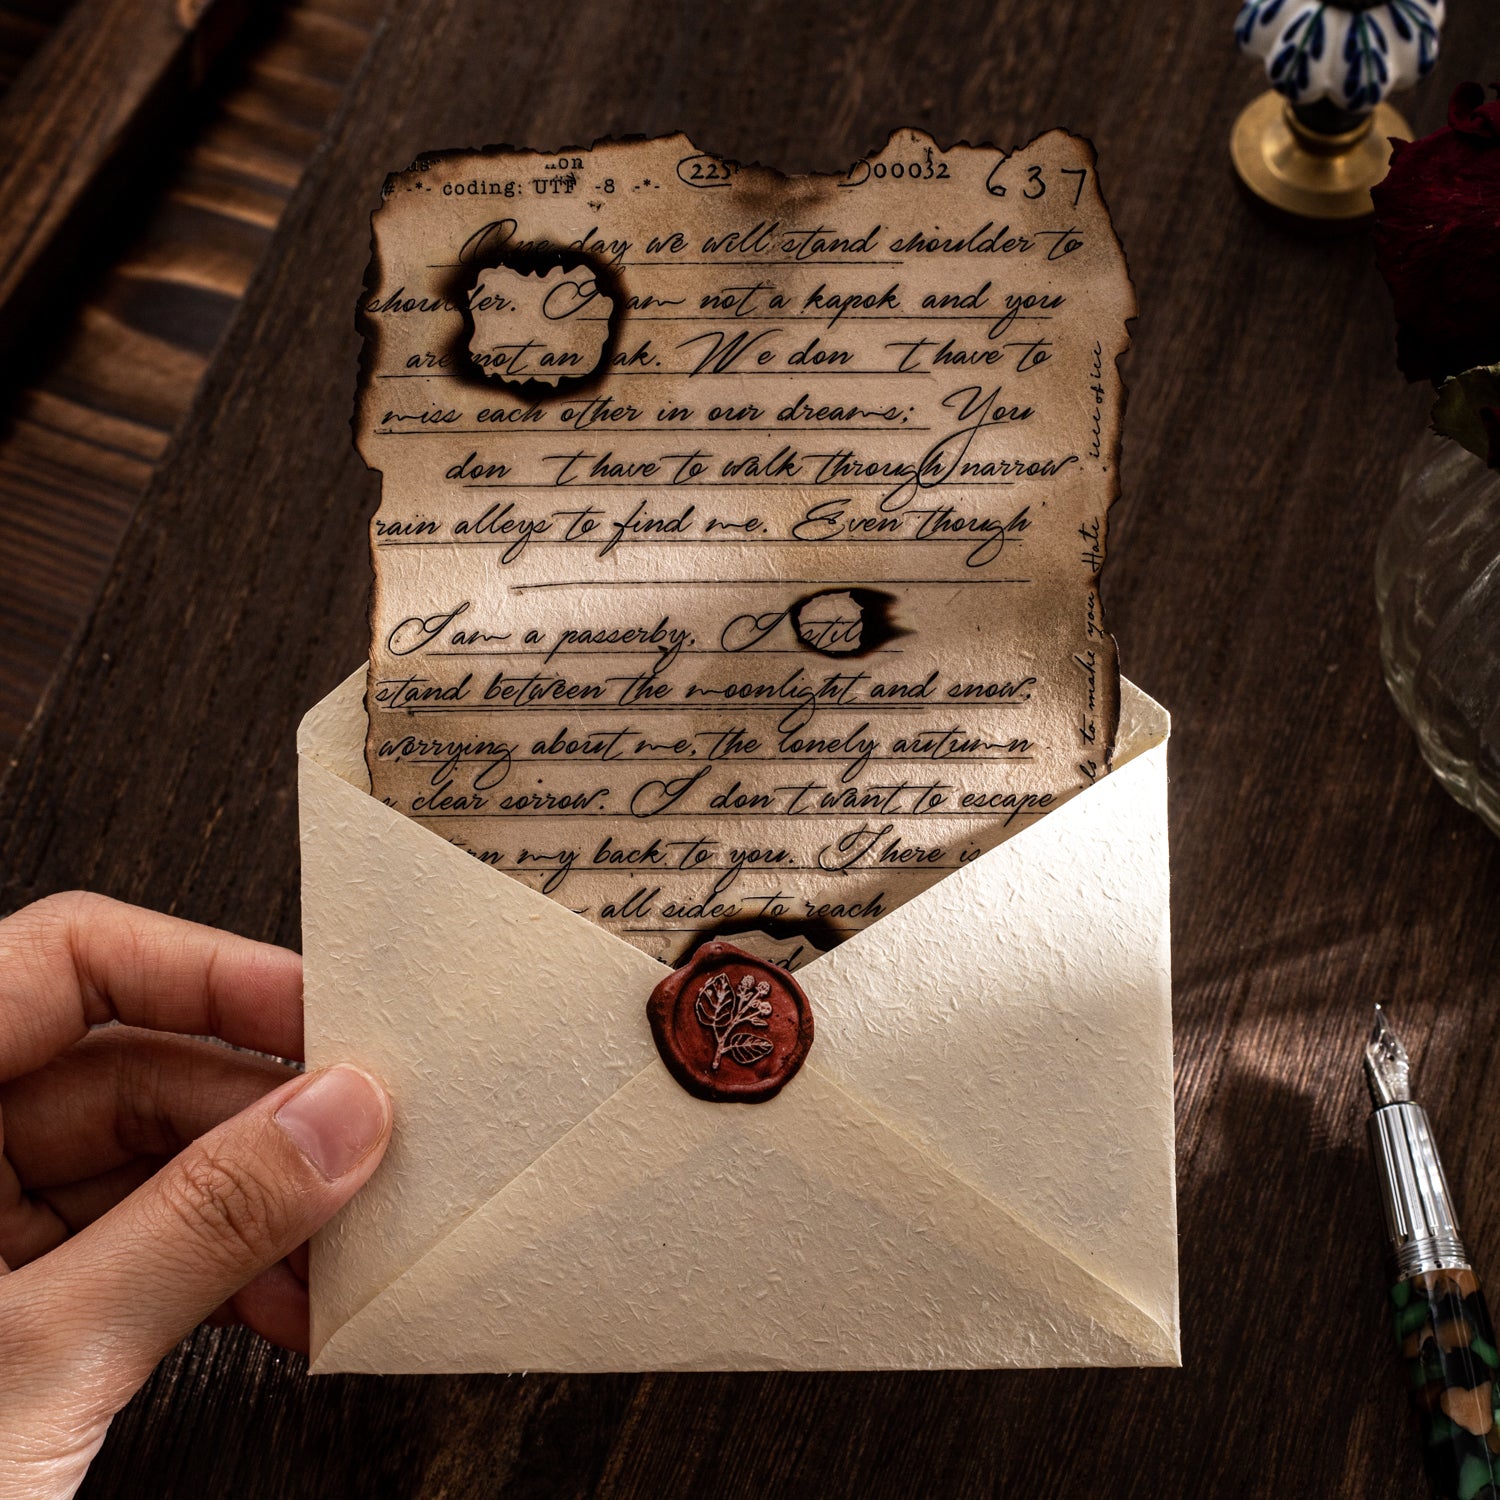 # -*- coding: UTF -8 -*- 225 D00032 637
One day we will stand shoulder to
shoulder. I am not a kapok and you
are not an ak. We don t have to
miss each other in our dreams; You
don t have to walk through narrow
rain alleys to find me. Even though
I am a passerby, I still
stand between the moonlight and snow,
worrying about me, the lonely autumn
clear sorrow. I don t want to escape
my back to you. There is
all sides to reach
to make you Hate